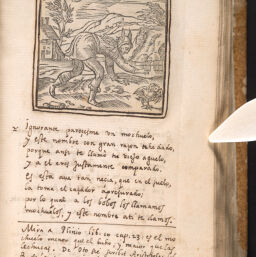 2. Ignorante pareceme un mochuelo,
y este nombre con gran rajon teha dado,
porque ansi te llamò tu viejo aguelo,
y a el eres Justamente comparado.
Es esta aue tan necia, que en el suelo,
la toma el caçador apresurado;
por lo qual a los bobos los llamamos
mochuelos, y este nombre ati te damos.
Mira a Plinio lib. 10 cap. 23. es el mo
chuelo menor que el buho, y maior que las
lechuças. De Oto